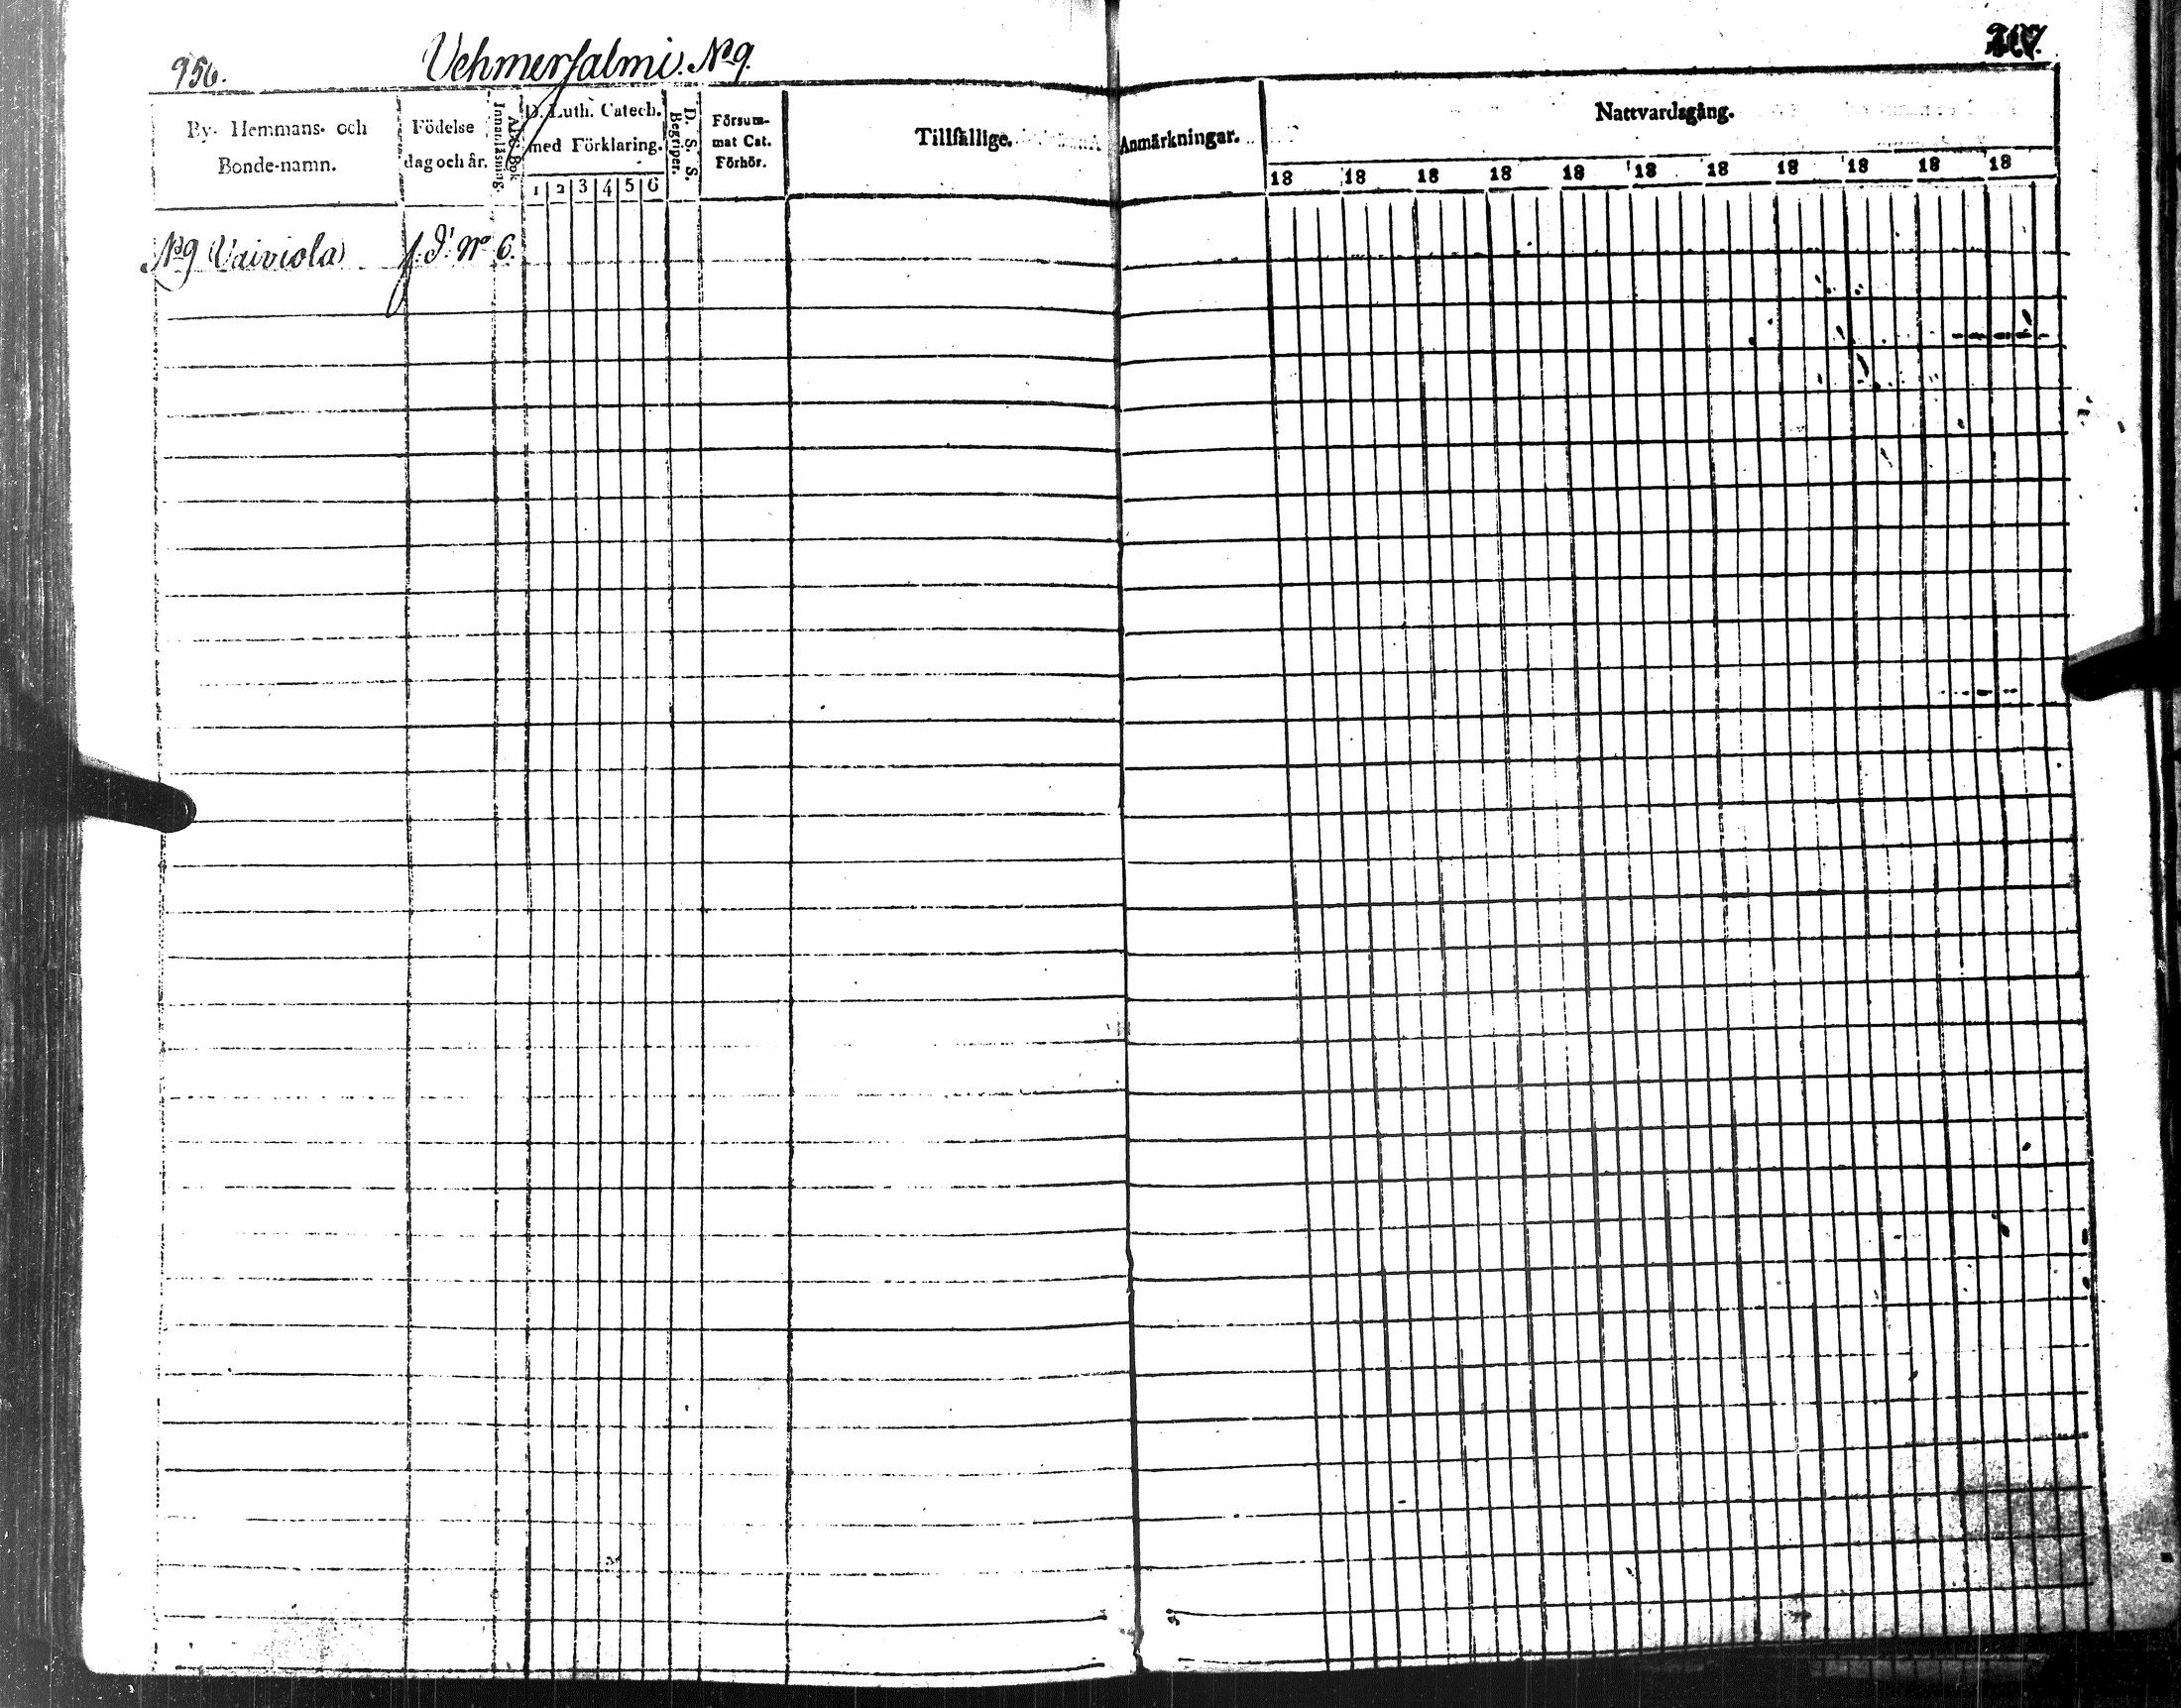 956.
Vehmersalmi. No 9.
By- Hemmans- och
Bonde-namn.
Födelse
dag och år.
A. B. C. Bok
Innanläsning.
D. Luth. Catech.
med Förklaring.
1 2 3 4 5 6
D. S. S.
Begriper.
Försum-
mat Cat.
Förhör.
Tillfällige.
Anmärkningar.
Nattvardsgång.
18 18 18 18 18 18 18 18 18 18 18
No 9 Vaiviola